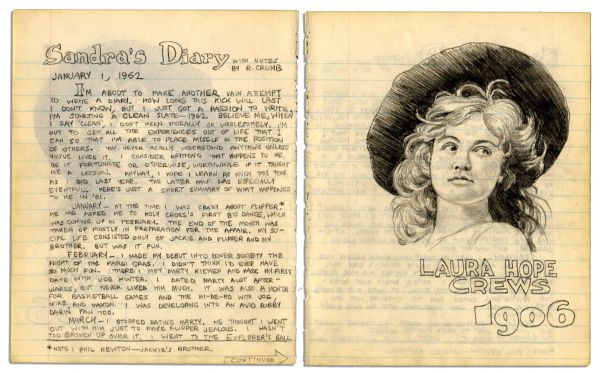 Sandra's Diary WITH NOTES
BY R. CRUMB
JANUARY 1, 1962
I'M ABOUT TO MAKE ANOTHER VAIN ATEMPT
TO WRITE A DIARY. HOW LONG THIS KICK WILL LAST
I DON'T KNOW, BUT I JUST GOT A PASSION TO WRITE.
I'M STARTING A CLEAN SLATE—1962. BELIEVE ME, WHEN
I SAY "CLEAN", I DON'T MEAN MORALLY OR WHOLESOMELY. I'M
OUT TO GET ALL THE EXPERIENCES OUT OF LIFE THAT I
CAN SO THAT I'M ABLE TO PLACE MYSELF IN THE POSITION
OF OTHERS. YOU NEVER REALLY UNDERSTAND ANYTHING UNLESS
YOU'VE LIVED IT. I CONSIDER ANYTHING THAT HAPPENS TO ME,
BE IT FORTUNATE OR OTHERWISE, WORTHWHILE IF IT TAUGHT
ME A LESSON. ANYWAY, I HOPE I LEARN AS MUCH THIS YEAR
AS I DID LAST YEAR. THE LATTER HALF WAS ESPECIALLY
EVENTFUL. HERE'S JUST A SHORT SUMMARY OF WHAT HAPPENED
TO ME IN '61.
JANUARY— AT THE TIME I WAS CRAZY ABOUT FLIPPER*
HE HAD ASKED ME TO HOLY CROSS'S FIRST BIG DANCE, WHICH
WAS COMING UP IN FEBRUARY. THE END OF THE MONTH WAS
TAKEN UP MOSTLY IN PREPARATION FOR THE AFFAIR. MY SO-
CIAL LIFE CONSISTED ONLY OF JACKIE AND FLIPPER AND MY
BROTHER. BUT WAS IT FUN.
FEBRUARY— I MADE MY DEBUT INTO DOVER SOCIETY THE
NIGHT OF THE MARDI GRAS. I DIDN'T THINK I'D EVER HAVE
SO MUCH FUN. THERE I MET MARTY KIEWEN AND MADE MY FIRST
DATE WITH JOE HUNTER. I DATED MARTY ALOT AFTER-
WARDS, BUT NEVER LIKED HIM MUCH. IT WAS ALSO A MONTH
FOR BASKETBALL GAMES AND THE HI-DE-HO WITH JOE,
MIKE, AND I WAS DEVELOPING INTO AN AVID BOBBY
DARIN FAN TOO.
MARCH— I STOPPED DATING MARTY. HE THOUGHT I WENT
OUT WITH HIM JUST TO MAKE FLIPPER JEALOUS. I WASN'T
TOO BROKEN UP OVER IT. I WENT TO THE EXPLORER'S BALL
*NOTE: PHIL NEWTON—JACKIE'S BROTHER
CONTINUED
LAURA HOPE
CREWS
1906